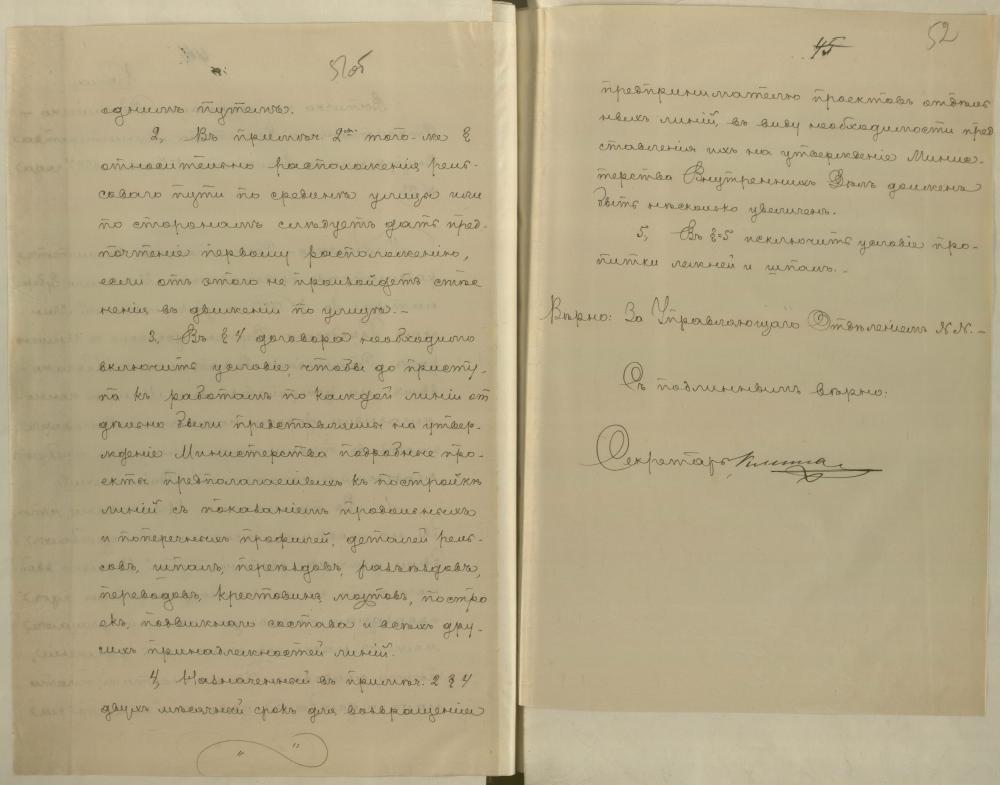 51об
однимъ путемъ.
2, Въ примѣч 2мъ того-же §
относительно расположенія рель-
соваго пути по срединѣ улицы или
по сторонамъ слѣдуетъ дать пред-
почтеніе первому расположенію,
если отъ этого не произойдетъ стѣс
ненія въ движеніи по улицѣ. –
3, Въ § 4 договора необходимо
включить условіе, чтобы до присту-
па къ работамъ по каждой линіи от
дѣльно были представляемы на утвер-
жденіе Министерства подробные про-
екты предполагаемыхъ къ постройкѣ
линій съ показаніемъ продольныхъ
и поперечныхъ профилей, деталей рель-
совъ, шпалъ, переѣздовъ, разъѣздовъ,
переводовъ, крестовинъ, мостовъ, постро
екъ, подвижнаго состава и всѣхъ дру-
гихъ принадлежностей линій.
4, Назначенный въ примѣч. 2 § 4
двухъ мѣсячный срокъ для возвращенія
52
45
предпринимателю проектовъ отдѣль
ныхъ линій, въ виду необходимости пред
ставленія ихъ на утвержденіе Минис-
терства Внутреннихъ Дѣлъ долженъ
быть нѣсколько увеличенъ.
5, Въ § 5 исключить условіе про-
питки лежней и шпалъ. –
Вѣрно: За Управляющаго Отдѣленіемъ N.N. –
Съ подлиннымъ вѣрно:
Секретарь